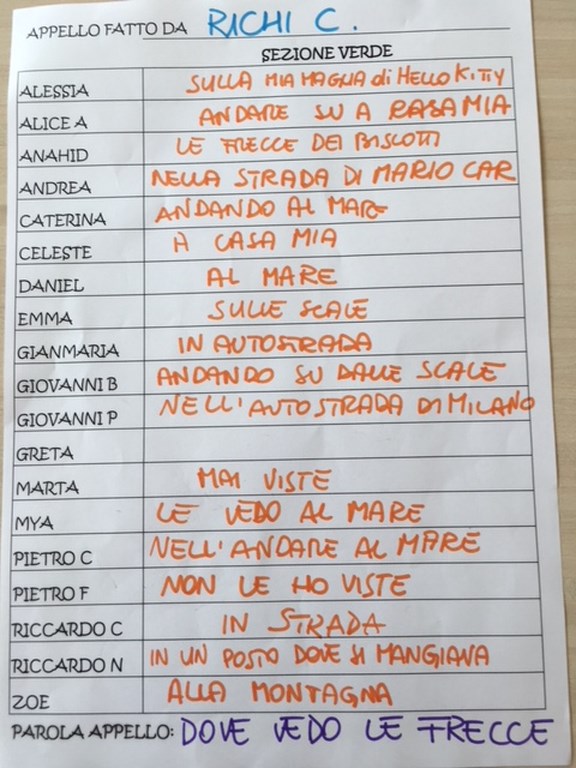 APPELLO FATTO DA RICHI C.
SEZIONE VERDE
ALESSIA SULLA MIA MAGLIA di HELLO KITTY
ALICE A ANDARE SU A CASA MIA
ANAHID LE FRECCE DEI BISCOTTI
ANDREA NELLA STRADA DI MARIO CAR
CATERINA ANDANDO AL MARE
CELESTE A CASA MIA
DANIEL AL MARE
EMMA SULLE SCALE
GIANMARIA IN AUTOSTRADA
GIOVANNI B ANDANDO SU DALLE SCALE
GIOVANNI P NELL'AUTOSTRADA DI MILANO
GRETA
MARTA MAI VISTE
MYA LE VEDO AL MARE
PIETRO C NELL'ANDARE AL MARE
PIETRO F NON LE HO VISTE
RICCARDO C IN STRADA
RICCARDO N IN UN POSTO DOVE SI MANGIAVA
ZOE ALLA MONTAGNA
PAROLA APPELLO: DOVE VEDO LE FRECCE